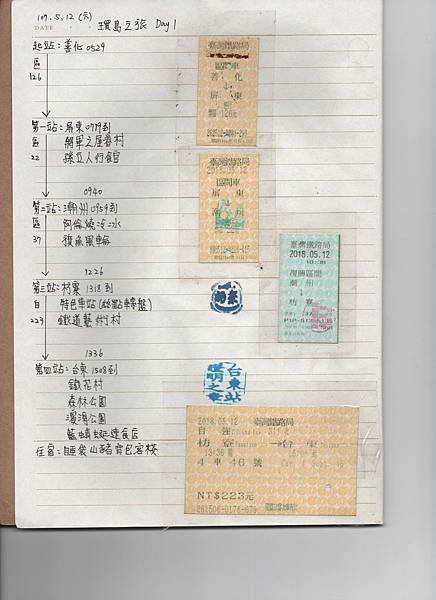 107.5.12 (六)
DATE
環島之旅 Day 1
起站:善化 0529
區
126
第一站:屏東 0719到
區 將軍之屋眷村
22 孫立人行館
0940
第二站:潮州 0959到
區 阿倫燒冷冰
37 旗魚黑輪
1226
第三站:枋寮 1318到
自 特色車站
223 鐵道藝術村
1336
第四站:台東 1508到
鐵花村
森林公園
濱海公園
藍蜻蜓速食店
住宿:睡袋山豬背包客棧
臺灣鐵路局
區間車
善化
↓
屏東
臺灣鐵路局
2018.05.12
區間車
屏東
↓
潮州
臺灣鐵路局
2018.05.12
復興區間
潮州
↓
枋寮
台東站
2018.05.12 臺灣鐵路局
自強
枋寮 → 台東
13:36開
4車46號
NT$223元